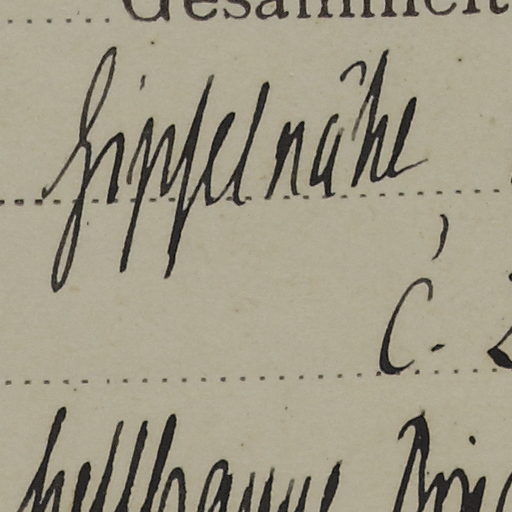 Gesammelt
Gipfelnähe
C.
hellbraune